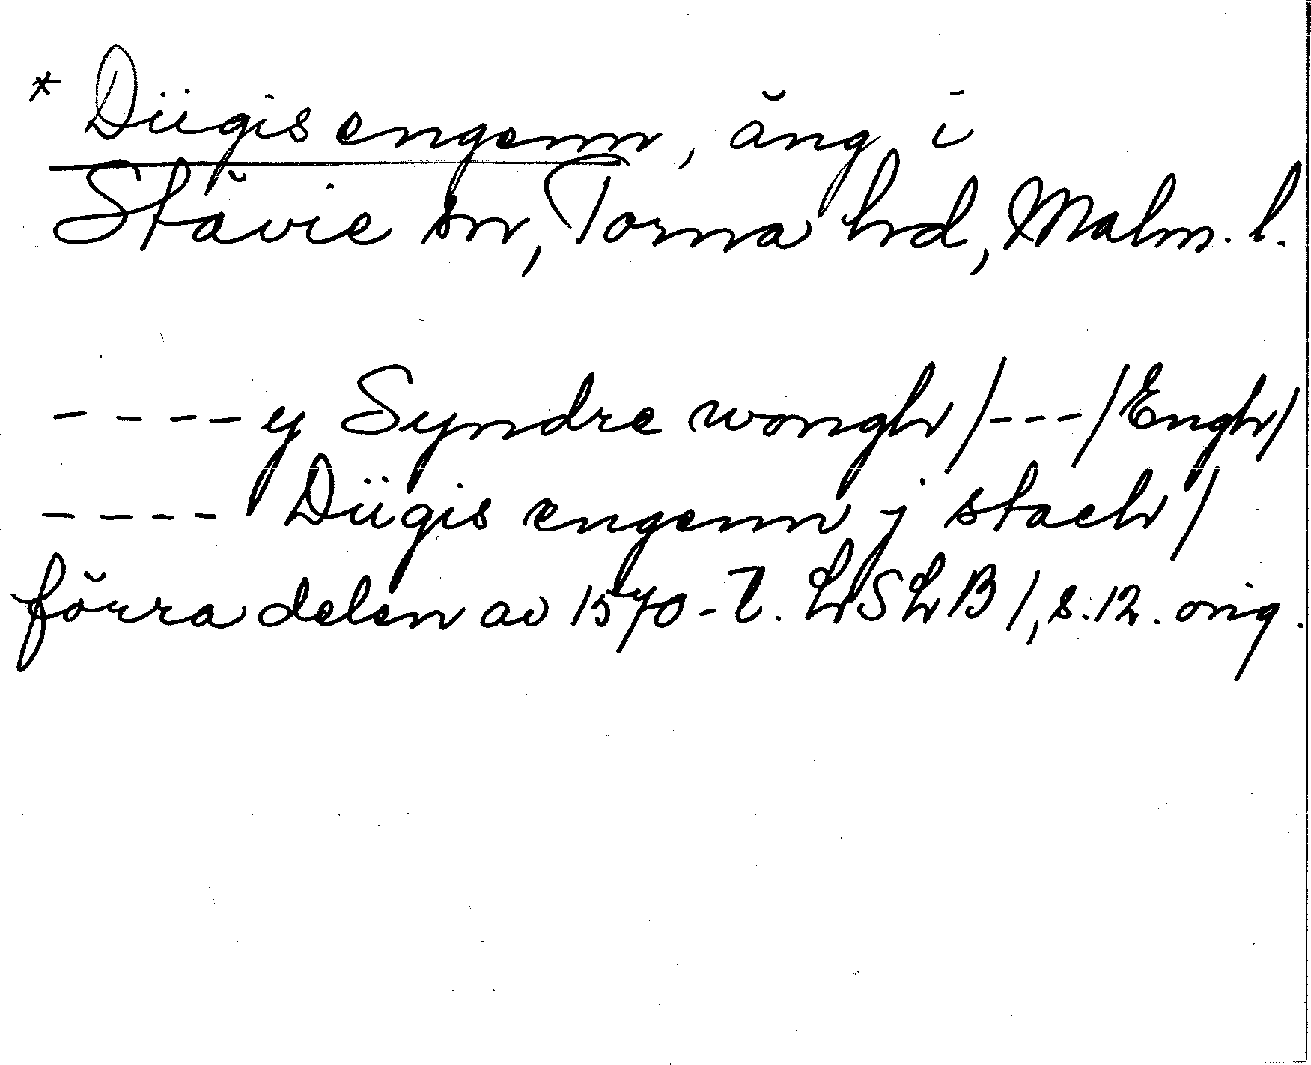 * Düigis engenn, äng i
Stävie sn, Torna hd, Malm. l.
- - - - y Syndre wongh / - - - / Engh /
- - - - Düigis engenn j stach /
förra delen av 1570-t. LSLB 1, s. 12. orig.